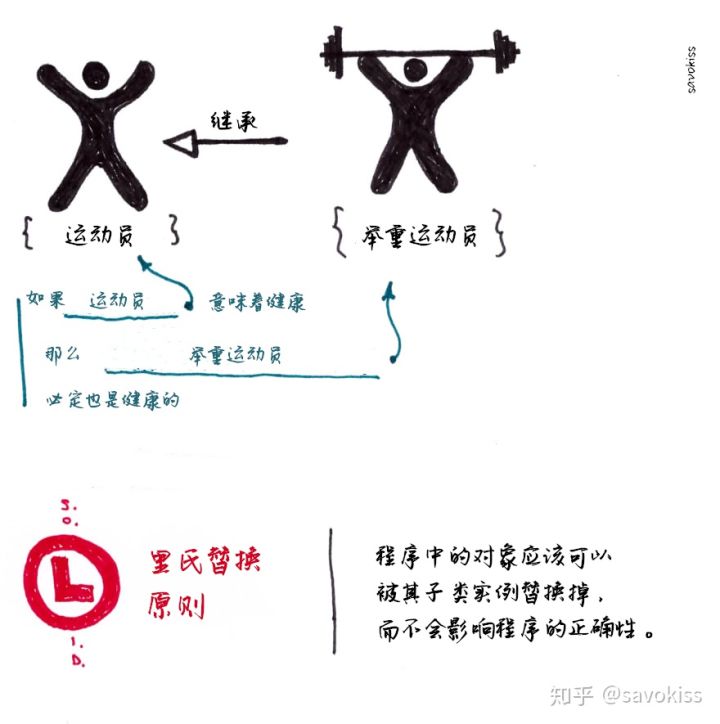 savokiss
继承
{ 运动员 }
{ 举重运动员 }
如果 运动员 意味着健康
那么 举重运动员
必定也是健康的
S.
O.
L
I.
D.
里氏替换
原则
程序中的对象应该可以
被其子类实例替换掉，
而不会影响程序的正确性。
知乎 @savokiss